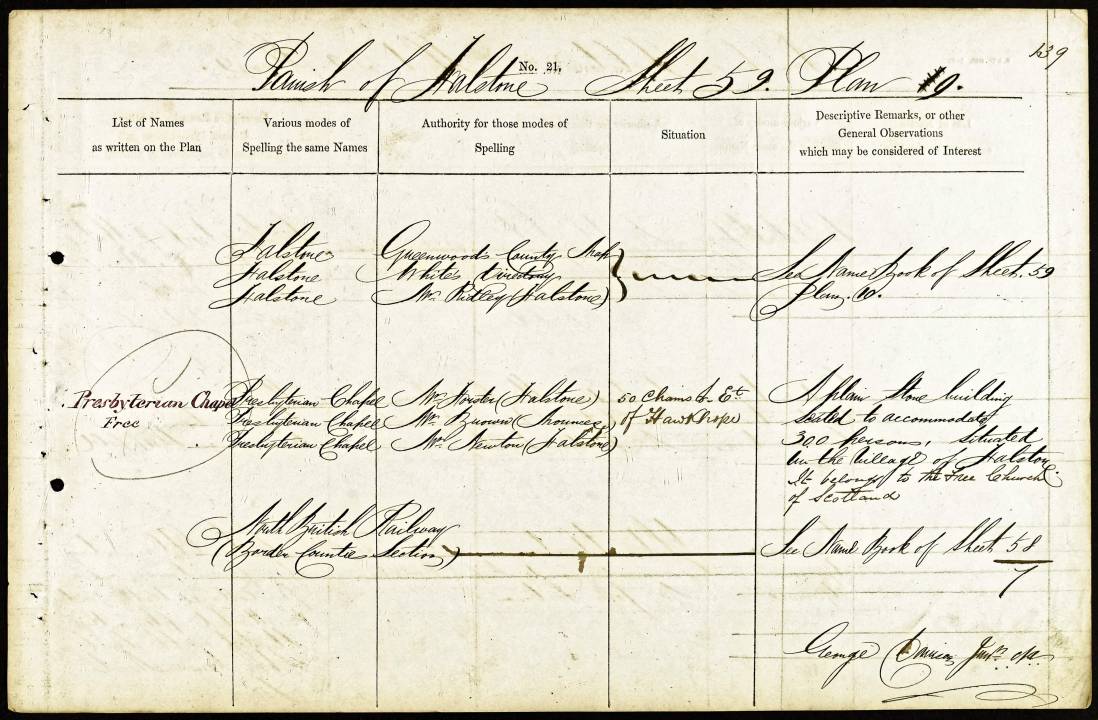 139
No. 21.
Parish of Falstone Sheet 59. Plan 9.
List of Names
as written on the Plan
Various modes of
Spelling the same Names
Authority for those modes of
Spelling
Situation
Descriptive Remarks, or other
General Observations
which may be considered of Interest
Falstone Greenwood's County Map
Falstone White's Directory
Falstone Mr. Ridley (Falstone)
See Name Book of Sheet. 59
Plan. 10.
Presbyterian Chapel
Free
Presbyterian Chapel Mr. Forster (Falstone)
Presbyterian Chapel Mr. Brown
Presbyterian Chapel Mr. Newton (Falstone)
50 Chains Et.
of Hawkhope
A plain Stone building
seated to accommodate
300 persons, situated
in the Village of Falstone
It belongs to the Free Church
of Scotland
North British Railway
(Border Counties Section)
See Name Book of Sheet 58
7
George